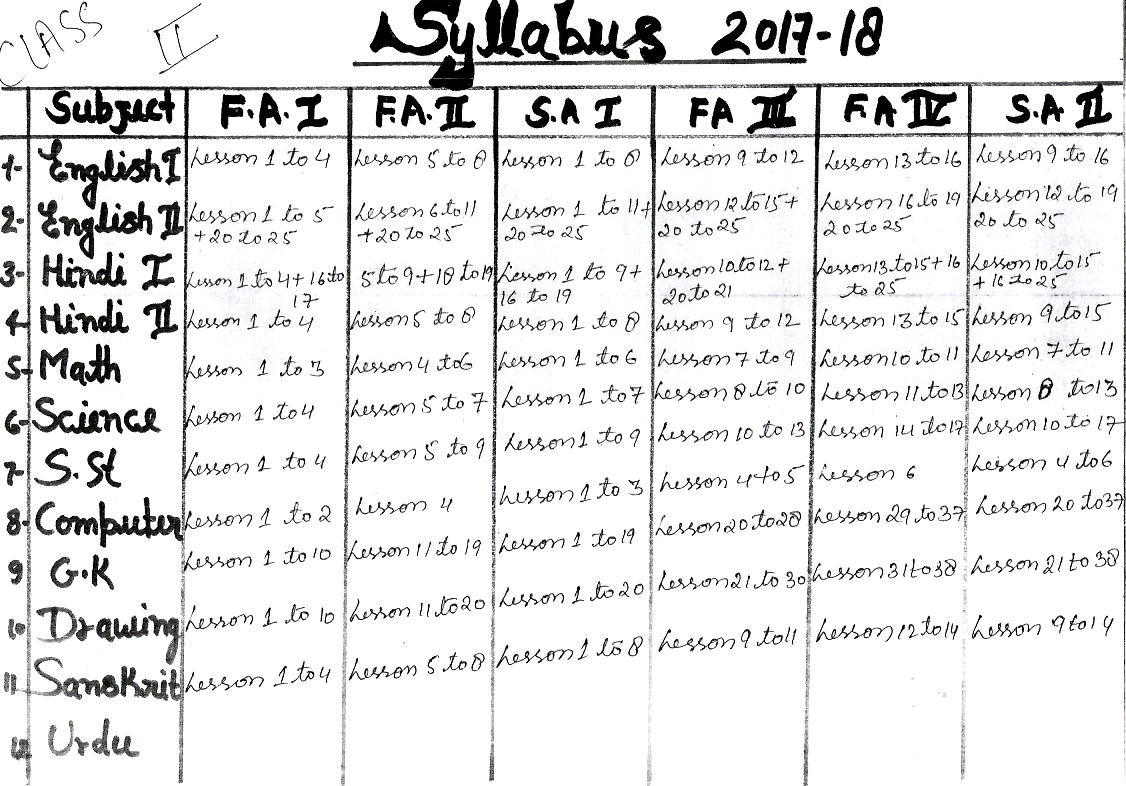 CLASS II
Syllabus 2017-18
Subject F.A. I F.A. II S.A I FA III F.A IV S.A II
1- English I Lesson 1 to 4 Lesson 5 to 8 Lesson 1 to 8 Lesson 9 to 12 Lesson 13 to 16 Lesson 9 to 16
2- English II Lesson 1 to 5 Lesson 6 to 11 Lesson 1 to 11+ Lesson 12 to 15+ Lesson 16 to 19 Lesson 12 to 19
+20 to 25 +20 to 25 20 to 25 20 to 25 20 to 25 20 to 25
3- Hindi I Lesson 1 to 4+16 to 5 to 9+18 to 19 Lesson 1 to 9+ Lesson 10 to 12+ Lesson 13 to 15+16 Lesson 10 to 15
17 16 to 19 20 to 21 to 25 +16 to 25
4- Hindi II Lesson 1 to 4 Lesson 5 to 8 Lesson 1 to 8 Lesson 9 to 12 Lesson 13 to 15 Lesson 9 to 15
5- Math Lesson 1 to 3 Lesson 4 to 6 Lesson 1 to 6 Lesson 7 to 9 Lesson 10 to 11 Lesson 7 to 11
6- Science Lesson 1 to 4 Lesson 5 to 7 Lesson 1 to 7 Lesson 8 to 10 Lesson 11 to 13 Lesson 8 to 13
7- S.St Lesson 1 to 4 Lesson 5 to 9 Lesson 1 to 9 Lesson 10 to 13 Lesson 14 to 17 Lesson 10 to 17
8- Computer Lesson 1 to 2 Lesson 4 Lesson 1 to 3 Lesson 4 to 5 Lesson 6 Lesson 4 to 6
9 G.K Lesson 1 to 10 Lesson 11 to 19 Lesson 1 to 19 Lesson 20 to 28 Lesson 29 to 37 Lesson 20 to 37
10 Drawing Lesson 1 to 10 Lesson 11 to 20 Lesson 1 to 20 Lesson 21 to 30 Lesson 31 to 38 Lesson 21 to 38
11 Sanskrit Lesson 1 to 4 Lesson 5 to 8 Lesson 1 to 8 Lesson 9 to 11 Lesson 12 to 14 Lesson 9 to 14
12 Urdu